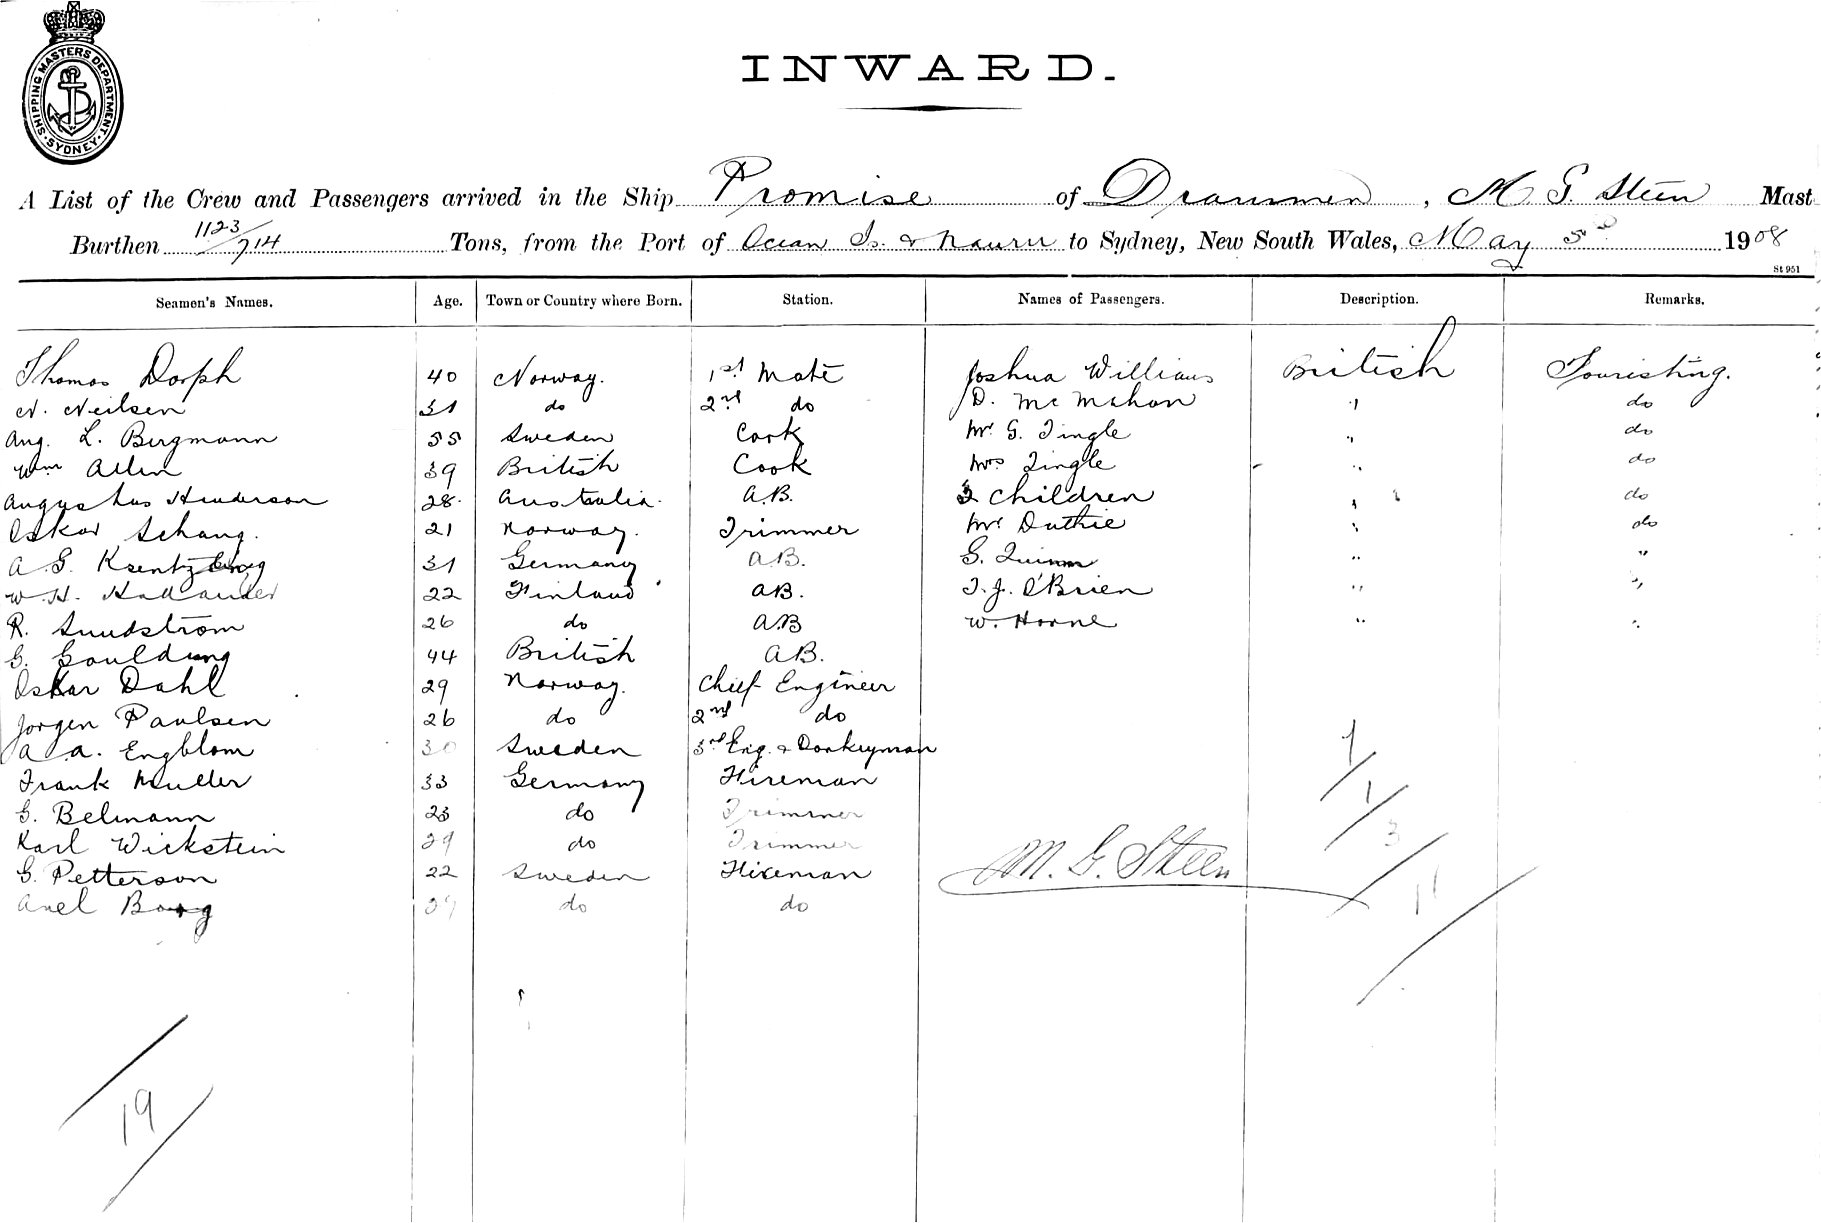 SHIPPING MASTERS DEPARTMENT · SYDNEY ·
INWARD.
A List of the Crew and Passengers arrived in the Ship Promise of Drammen, M. G. Steen Mast
Burthen 1123/714 Tons, from the Port of Ocean Is. & Nauru to Sydney, New South Wales, May 1908
St 951
Seamen's Names. Age. Town or Country where Born. Station. Names of Passengers. Description. Remarks.
Thomas Dorph 40 Norway. 1st Mate Joshua Williams British Touristing.
N. Neilsen 31 do 2nd do D. McMahon " do
Aug. L. Bergmann 55 Sweden Cook Mr. G. Tingle " do
Wm Allen 39 British Cook Mrs Tingle " do
Augustus Henderson 28. Australia. A.B. Children " do
Oskar Schang. 21 Norway. Trimmer Mr Duthie " do
A. G. 31 Germany A.B. G. Quinn " "
W. H. Hollander 22 Finland A.B. T. J. O'Brien " "
R. Sundstrom 26 do A.B W. Horne " "
G. Goulding 44 British A.B.
Oskar Dahl 29 Norway. Chief Engineer
Jorgen Paulsen 26 do 2nd do
A. A. Engblom 30 Sweden 3rd Eng. & Donkeyman
Frank Muller 33 Germany Fireman
G. Belmann 23 do Trimmer
Karl Wickstein 29 do Trimmer
G. Petterson 22 Sweden Fireman
Axel Borg do do
M. G. Steen
1/
1/
3/
11/
19/